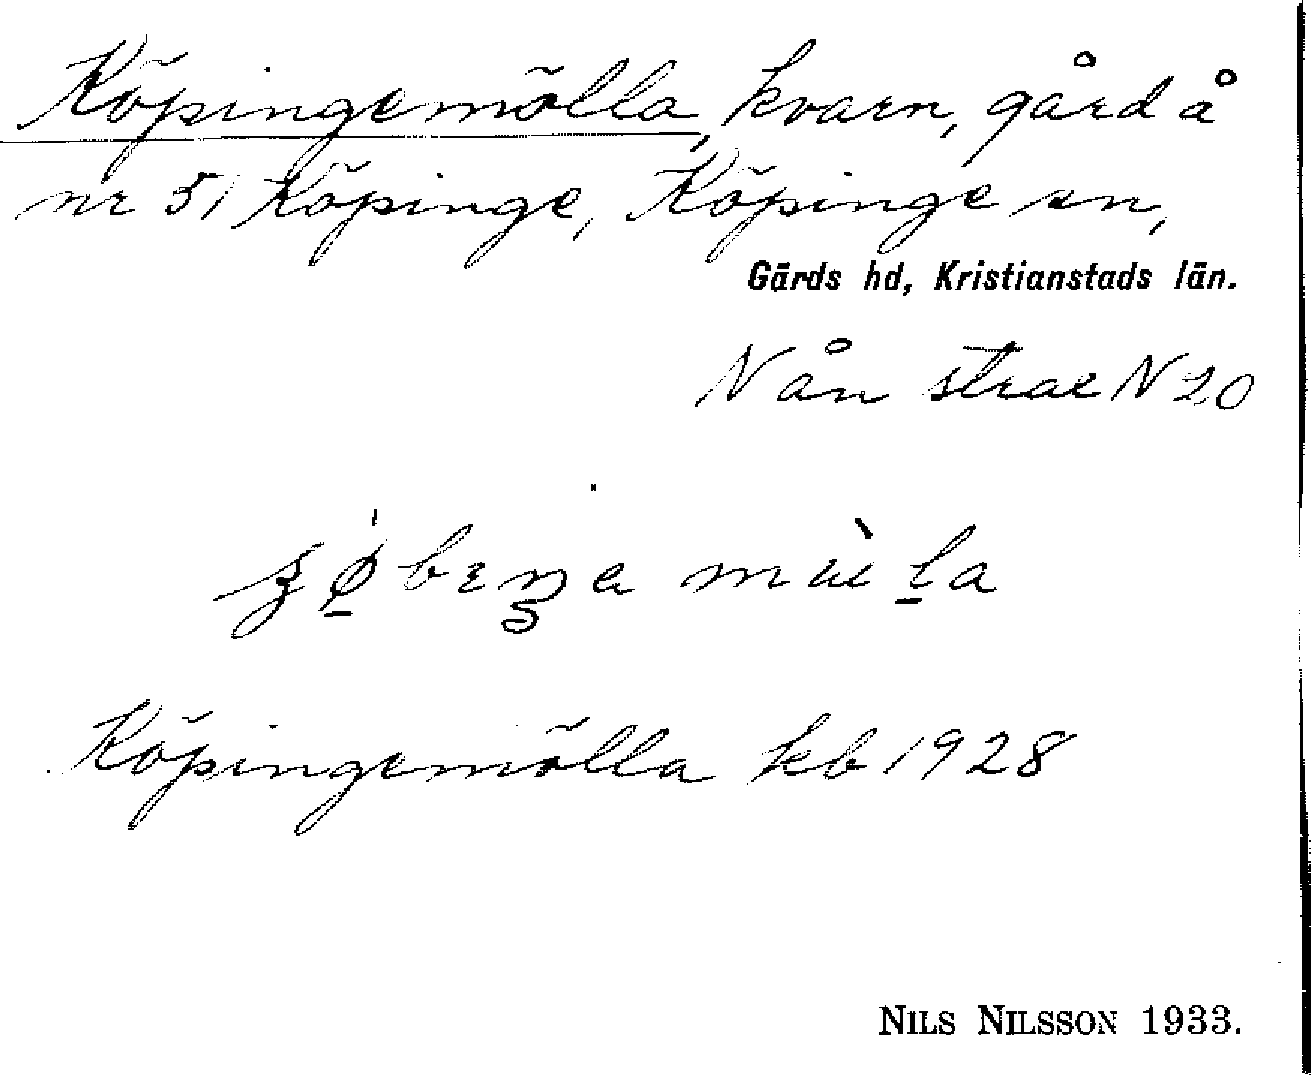 Köpingemölla, kvarn, gård å
nr 51 Köpinge, Köpinge sn,
Gärds hd, Kristianstads län.
N ån strax N 20
Köpingemölla kb 1928
NILS NILSSON 1933.